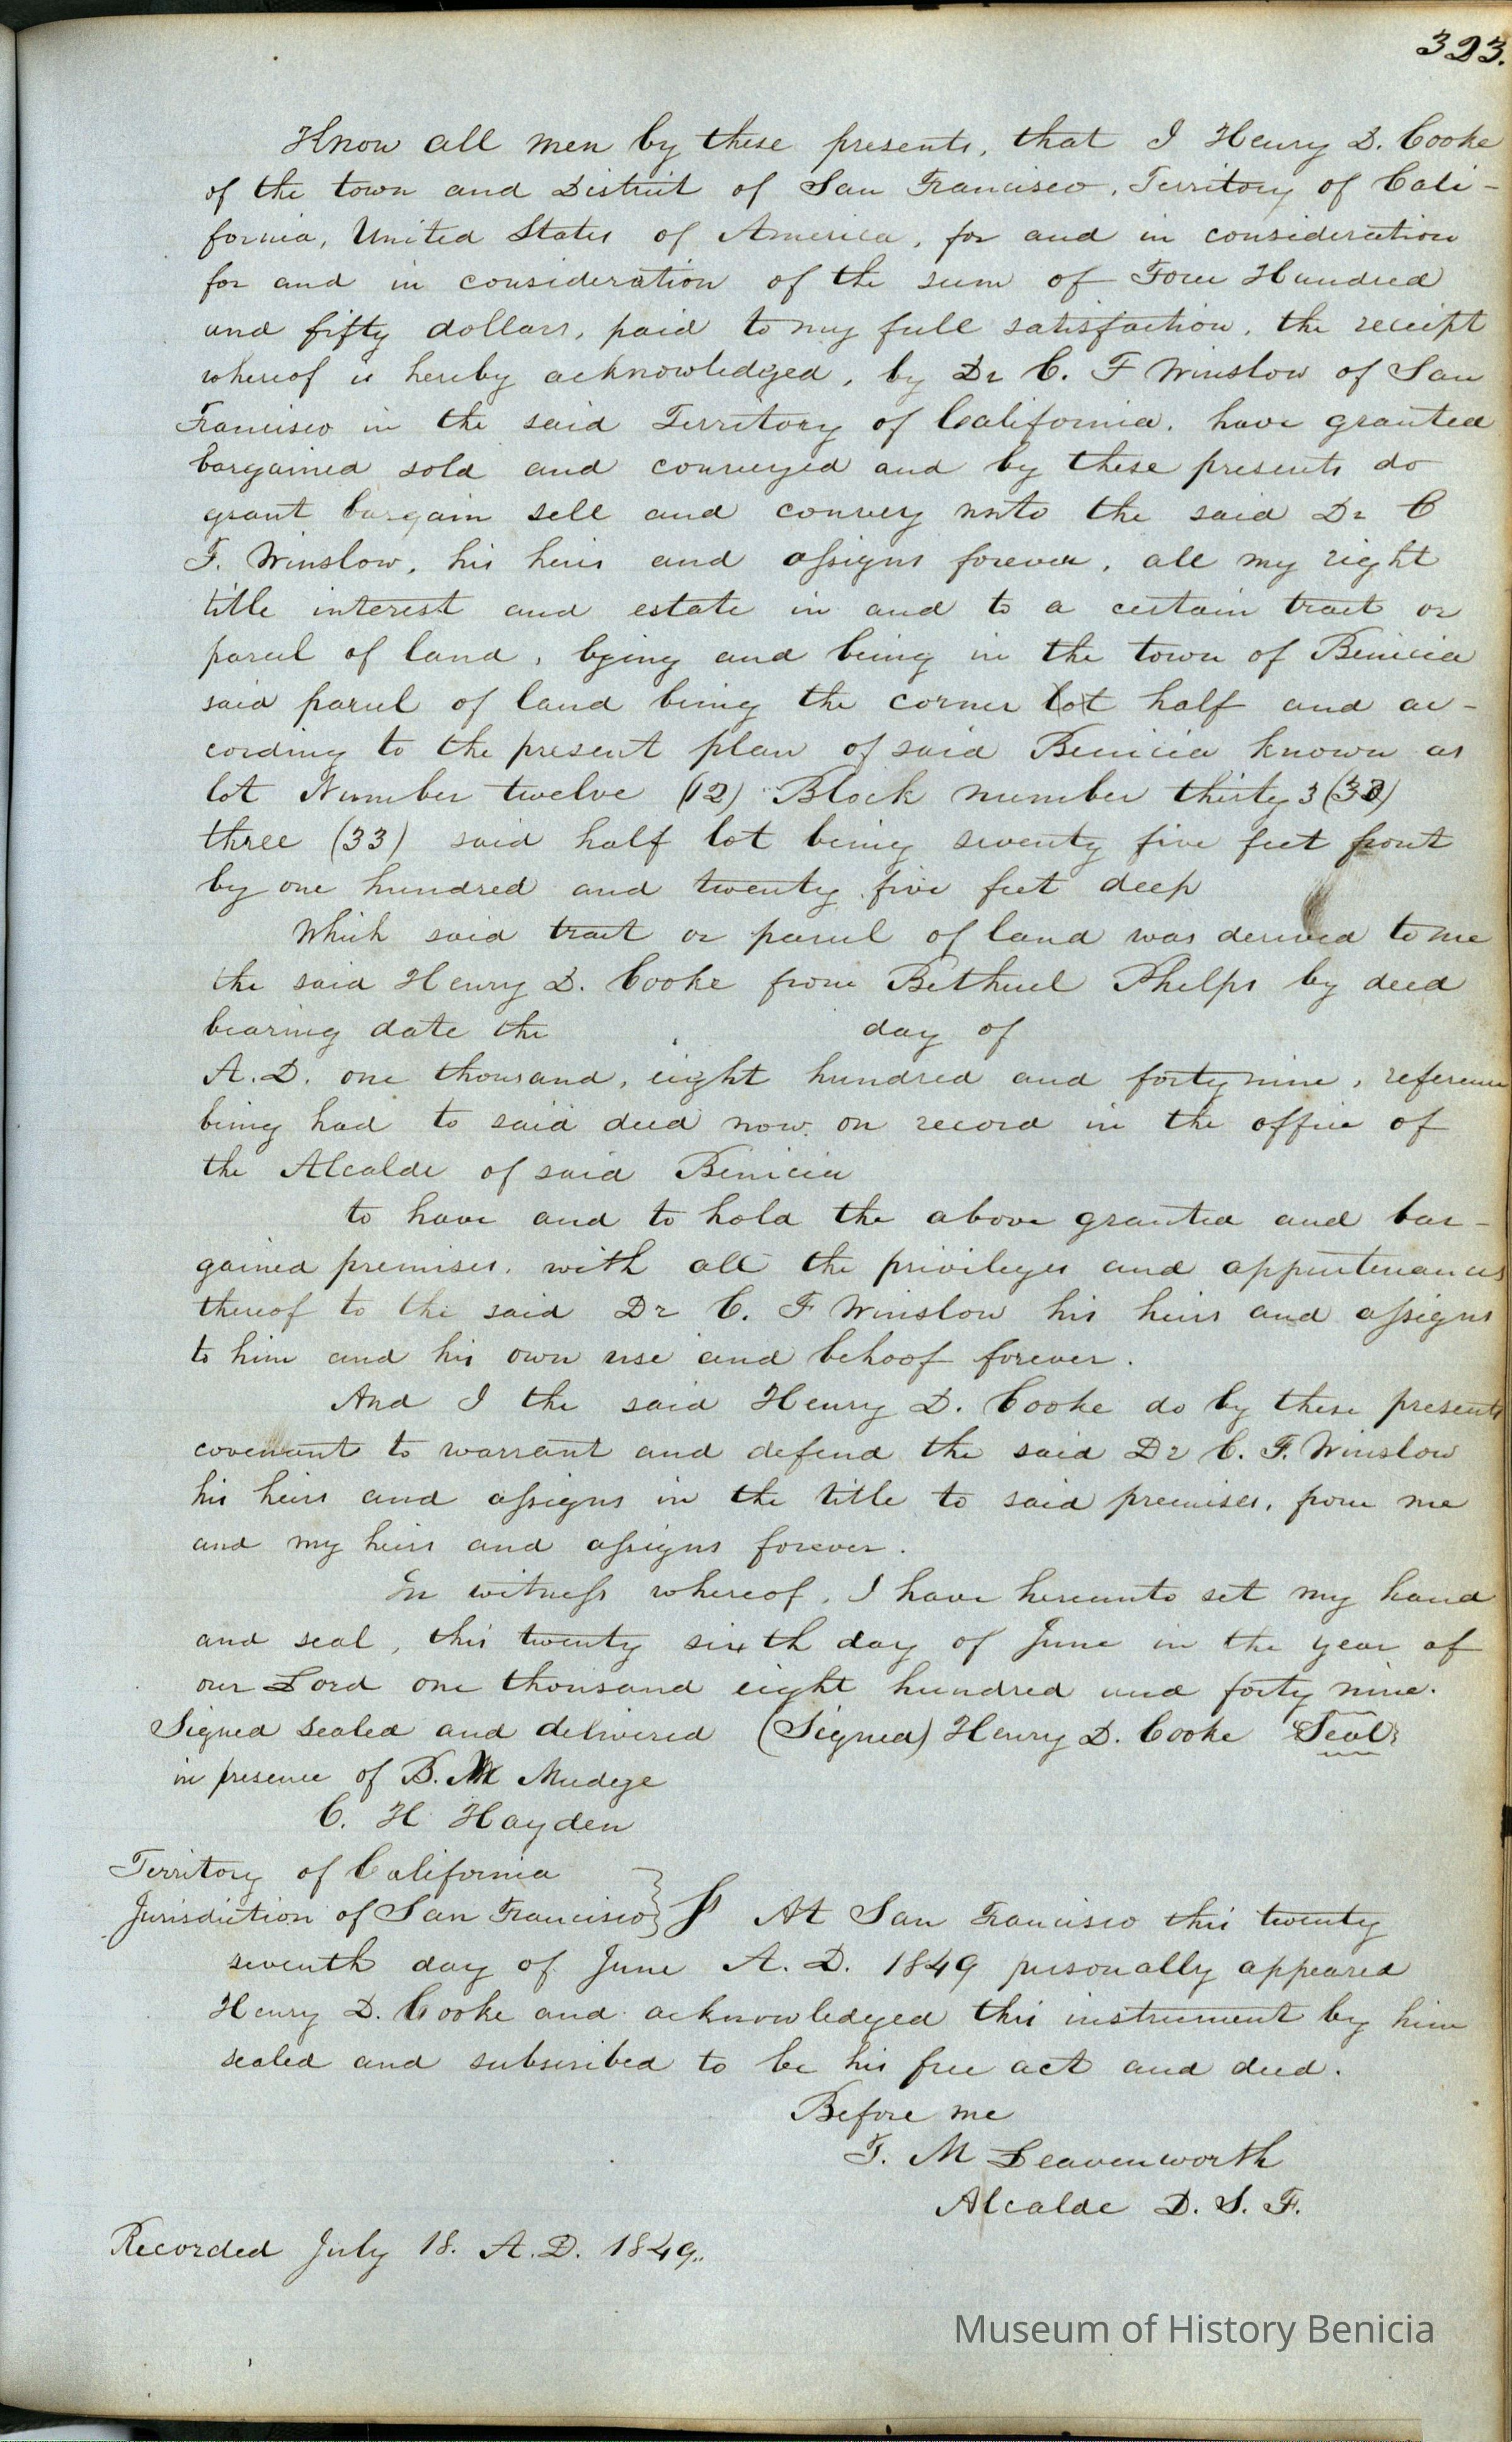 323.
Know all men by these presents, that I Henry D. Cooke
of the town and District of San Francisco, Territory of Cali-
fornia, United States of America, for and in consideration
for and in consideration of the sum of Four Hundred
and fifty dollars, paid to my full satisfaction, the receipt
whereof is hereby acknowledged, by Dr C. F Winslow of San
Francisco in the said Territory of California. have granted
bargained sold and conveyed and by these presents do
grant bargain sell and convey unto the said Dr C
F. Winslow, his heirs and assigns forever, all my right
title interest and estate in and to a certain tract or
parcel of land, lying and being in the town of Benicia
said parcel of land being the corner lot half and ac-
cording to the present plan of said Benicia known as
lot Number twelve (12) Block number thirty 3 (33)
three (33) said half lot being seventy five feet front
by one hundred and twenty five feet deep
Which said tract or parcel of land was derived to me
the said Henry D. Cooke from Bethuel Phelps by deed
bearing date the day of
A.D. one thousand, eight hundred and forty nine, reference
being had to said deed now on record in the office of
the Alcalde of said Benicia
to have and to hold the above granted and bar-
gained premises. with all the privileges and appurtenances
thereof to the said Dr C. F Winslow his heirs and assigns
to him and his own use and behoof forever.
And I the said Henry D. Cooke do by these presents
covenant to warrant and defend the said Dr C. F. Winslow
his heirs and assigns in the title to said premises, from me
and my heirs and assigns forever.
In witness whereof, I have hereunto set my hand
and seal, this twenty sixth day of June in the year of
our Lord one thousand eight hundred and forty nine.
Signed sealed and delivered (Signed) Henry D. Cooke Seal
in presence of B. M Mudge
C. H Hayden
Territory of California
Jurisdiction of San Francisco } Ss At San Francisco this twenty
seventh day of June A. D. 1849 personally appeared
Henry D. Cooke and acknowledged this instrument by him
sealed and subscribed to be his free act and deed.
Before me
T. M Leavenworth
Alcalde D. S. F.
Recorded July 18. A.D. 1849.
Museum of History Benicia